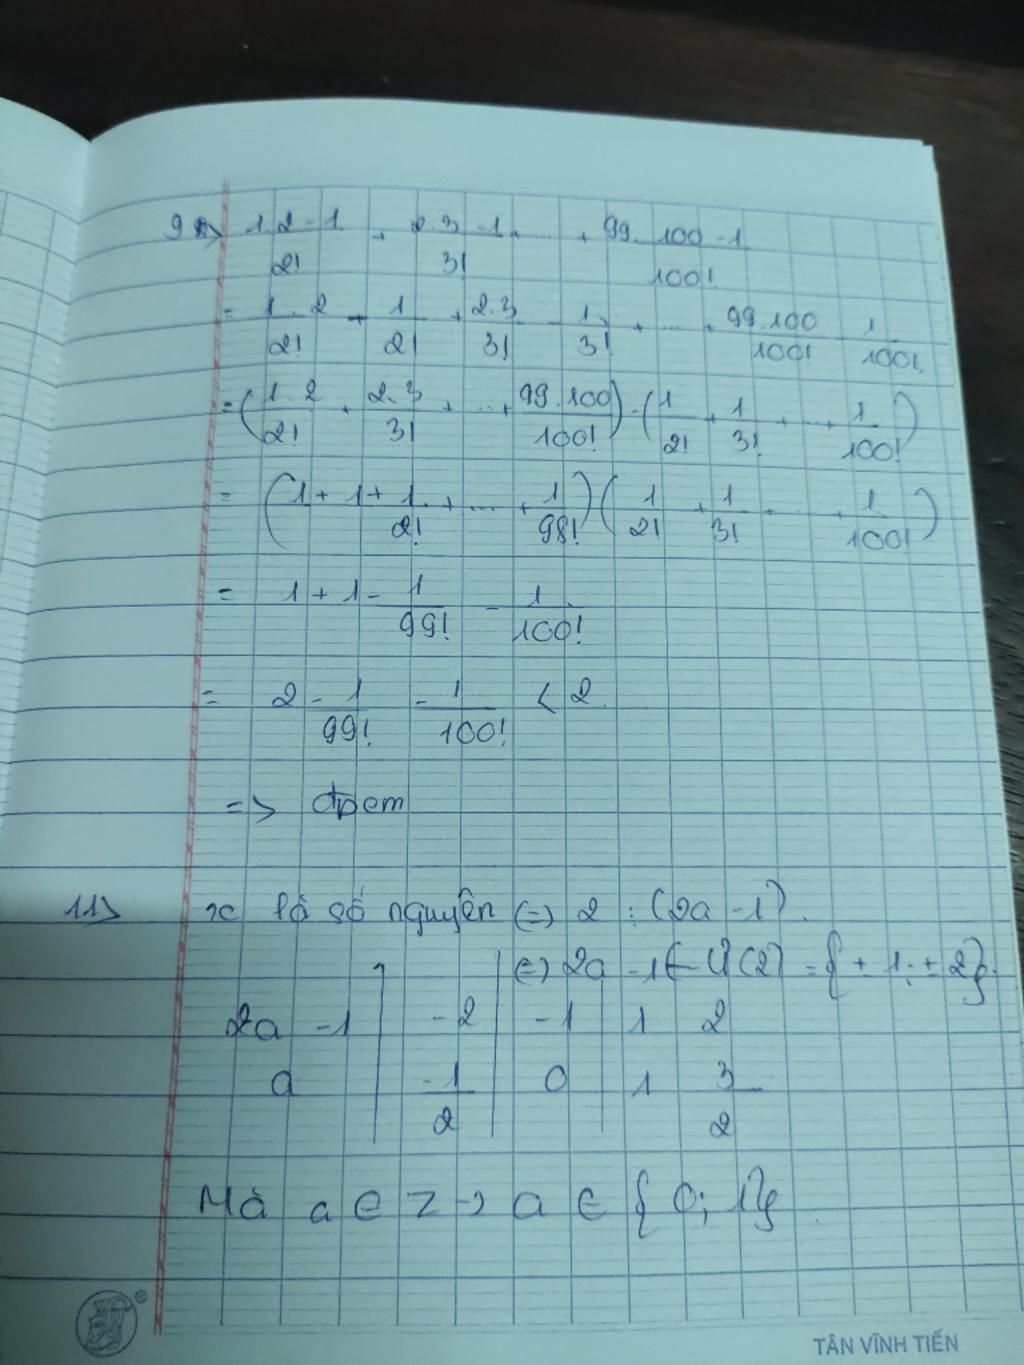 9) 1.2 - 1 / 2! + 2.3 - 1 / 3! + .... + 99.100 - 1 / 100!
= 1.2 / 2! - 1 / 2! + 2.3 / 3! - 1 / 3! + .... + 99.100 / 100! - 1 / 100!
= (1.2 / 2! + 2.3 / 3! + ... + 99.100 / 100!) - (1 / 2! + 1 / 3! + ... + 1 / 100!)
= (1 + 1 + 1 / 2! + ... + 1 / 98!) (1 / 2! + 1 / 3! + ... + 1 / 100!)
= 1 + 1 - 1 / 99! - 1 / 100!
= 2 - 1 / 99! - 1 / 100! < 2
=> đpcm
11) x là số nguyên (=) 2 : (2a - 1).
(=) 2a - 1 ∈ Ư(2) = { ± 1; ± 2}
2a - 1 | -2 | -1 | 1 2
a | -1/2 | 0 | 1 3/2
Mà a ∈ Z → a ∈ { 0; 1}
TÂN VĨNH TIẾN